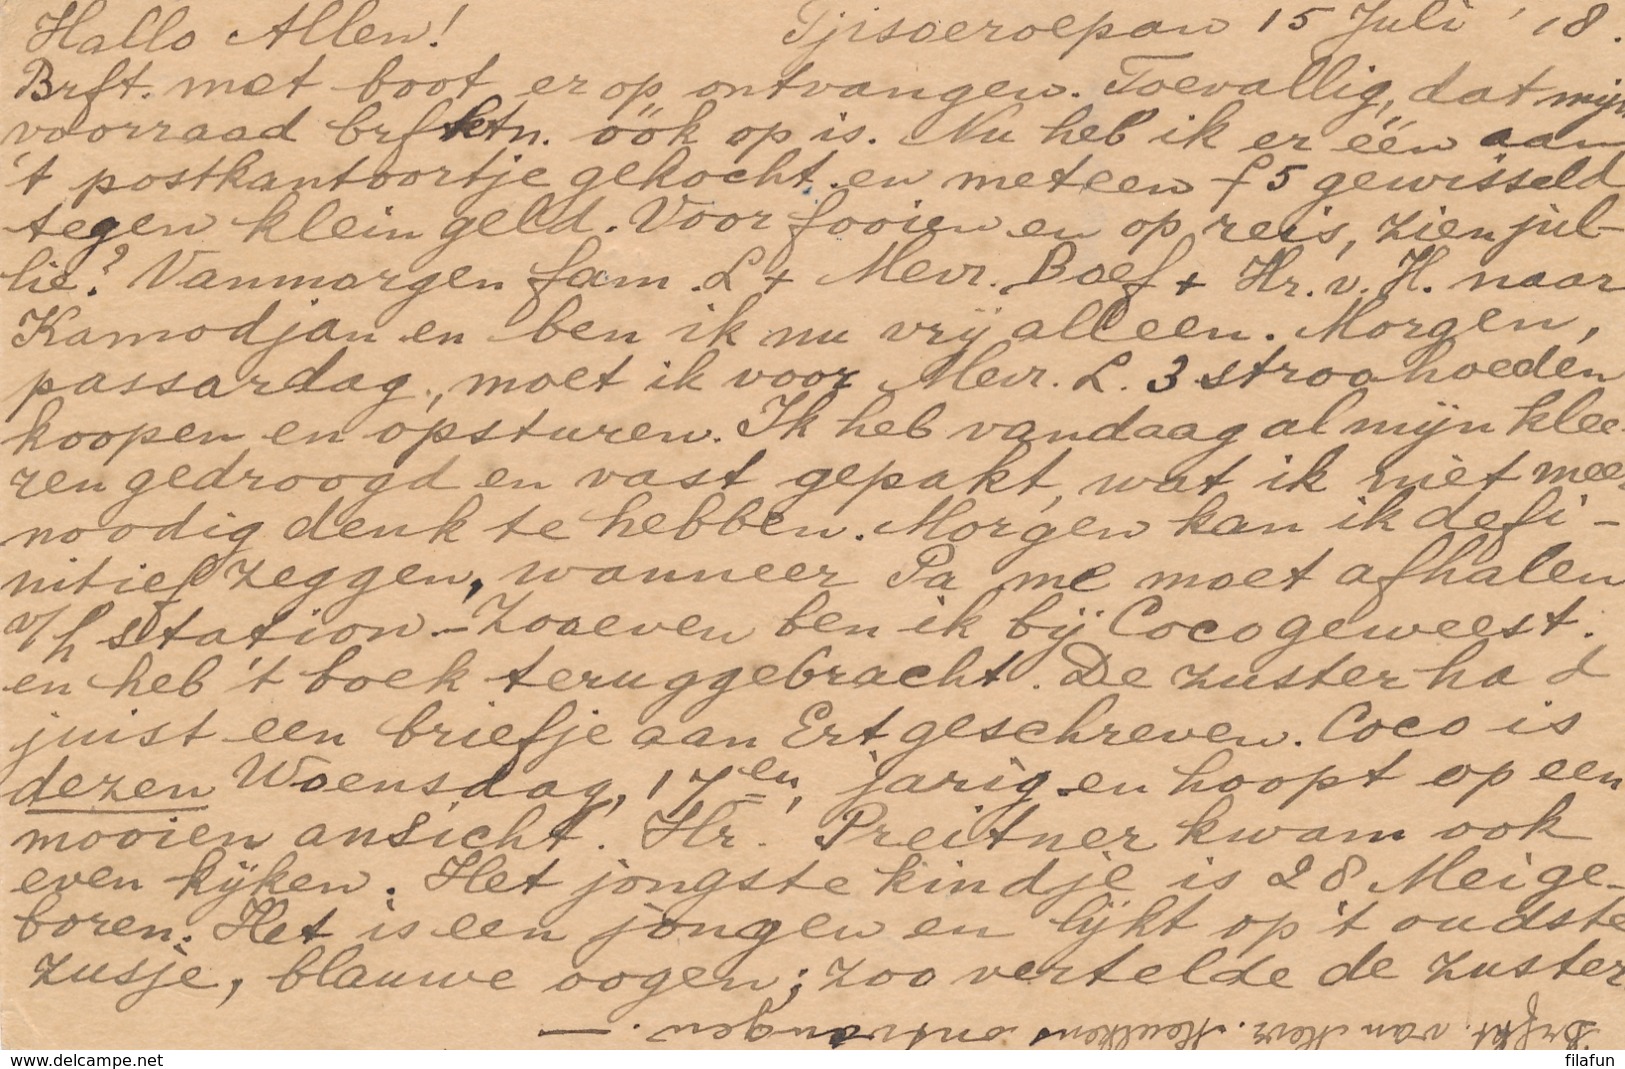 Hallo Allen! Tjisoeroepan 15 Juli '18.
Brft. met boot er op ontvangen. Toevallig, dat mijn
voorraad brfktn. óók op is. Nu heb ik er één aan
't postkantoortje gekocht en meteen f 5 gewisseld
tegen klein geld. Voor fooien en op reis, zien jul-
lie? Vanmorgen fam. L + Mevr. Boef + Hr. v. H. naar
Kamodjan en ben ik nu vrij alleen. Morgen,
passardag, moet ik voor Mevr. L. 3 stroohoeden
koopen en opsturen. Ik heb vandaag al mijn klee-
ren gedroogd en vast gepakt, wat ik niet meer
noodig denk te hebben. Morgen kan ik defi-
nitief zeggen, wanneer Pa me moet afhalen
v/h station. - Zooeven ben ik bij Coco geweest.
en heb 't boek teruggebracht. De zuster had
juist een briefje aan Ert geschreven. Coco is
dezen Woensdag, 17en, jarig en hoopt op een
mooien ansicht. Hr. Preitner kwam ook
even kijken. Het jongste kindje is 28 Mei ge-
boren. Het is een jongen en lijkt op 't oudste
zusje, blauwe oogen; zoo vertelde de zuster
Brfkt. van Mevr. ontvangen. —
www.delcampe.net filafun